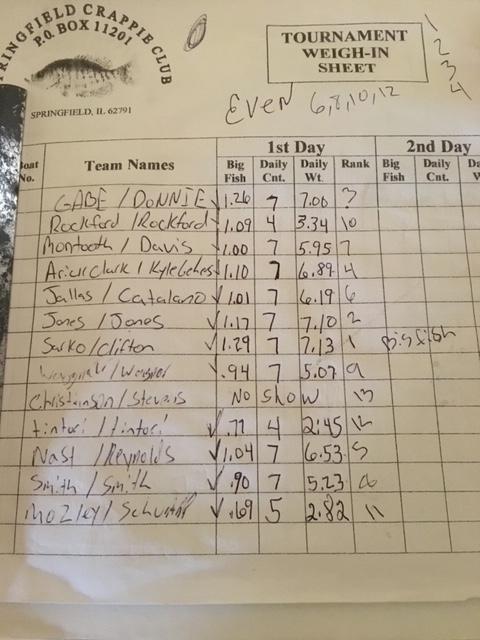 SPRINGFIELD CRAPPIE CLUB
P.O. BOX 11201
SPRINGFIELD, IL 62791
TOURNAMENT
WEIGH-IN
SHEET
1
2
3
4
EVEN 6,8,10,12
1st Day 2nd Day
Boat No. Team Names Big Fish Daily Cnt. Daily Wt. Rank Big Fish Daily Cnt.
GABE / DONNIE ✓ 1.26 7 7.00 3
Rockford / Rockford ✓ 1.09 4 3.34 10
Montooth / Davis ✓ 1.00 7 5.95 7
Clark / Kyle ✓ 1.10 7 6.89 4
Jallas / Catalano ✓ 1.01 7 6.19 6
Jones / Jones ✓ 1.17 7 7.10 2
Sarko / Clifton ✓ 1.29 7 7.13 1 Big fish
✓ .94 7 5.07 9
Christenson / Stevens No Show 13
tintori / tintori ✓ .77 4 2.45 12
Nast / Reynolds ✓ 1.04 7 6.53 5
Smith / Smith ✓ .90 7 5.23
Mozley / ✓ .69 5 2.82 11